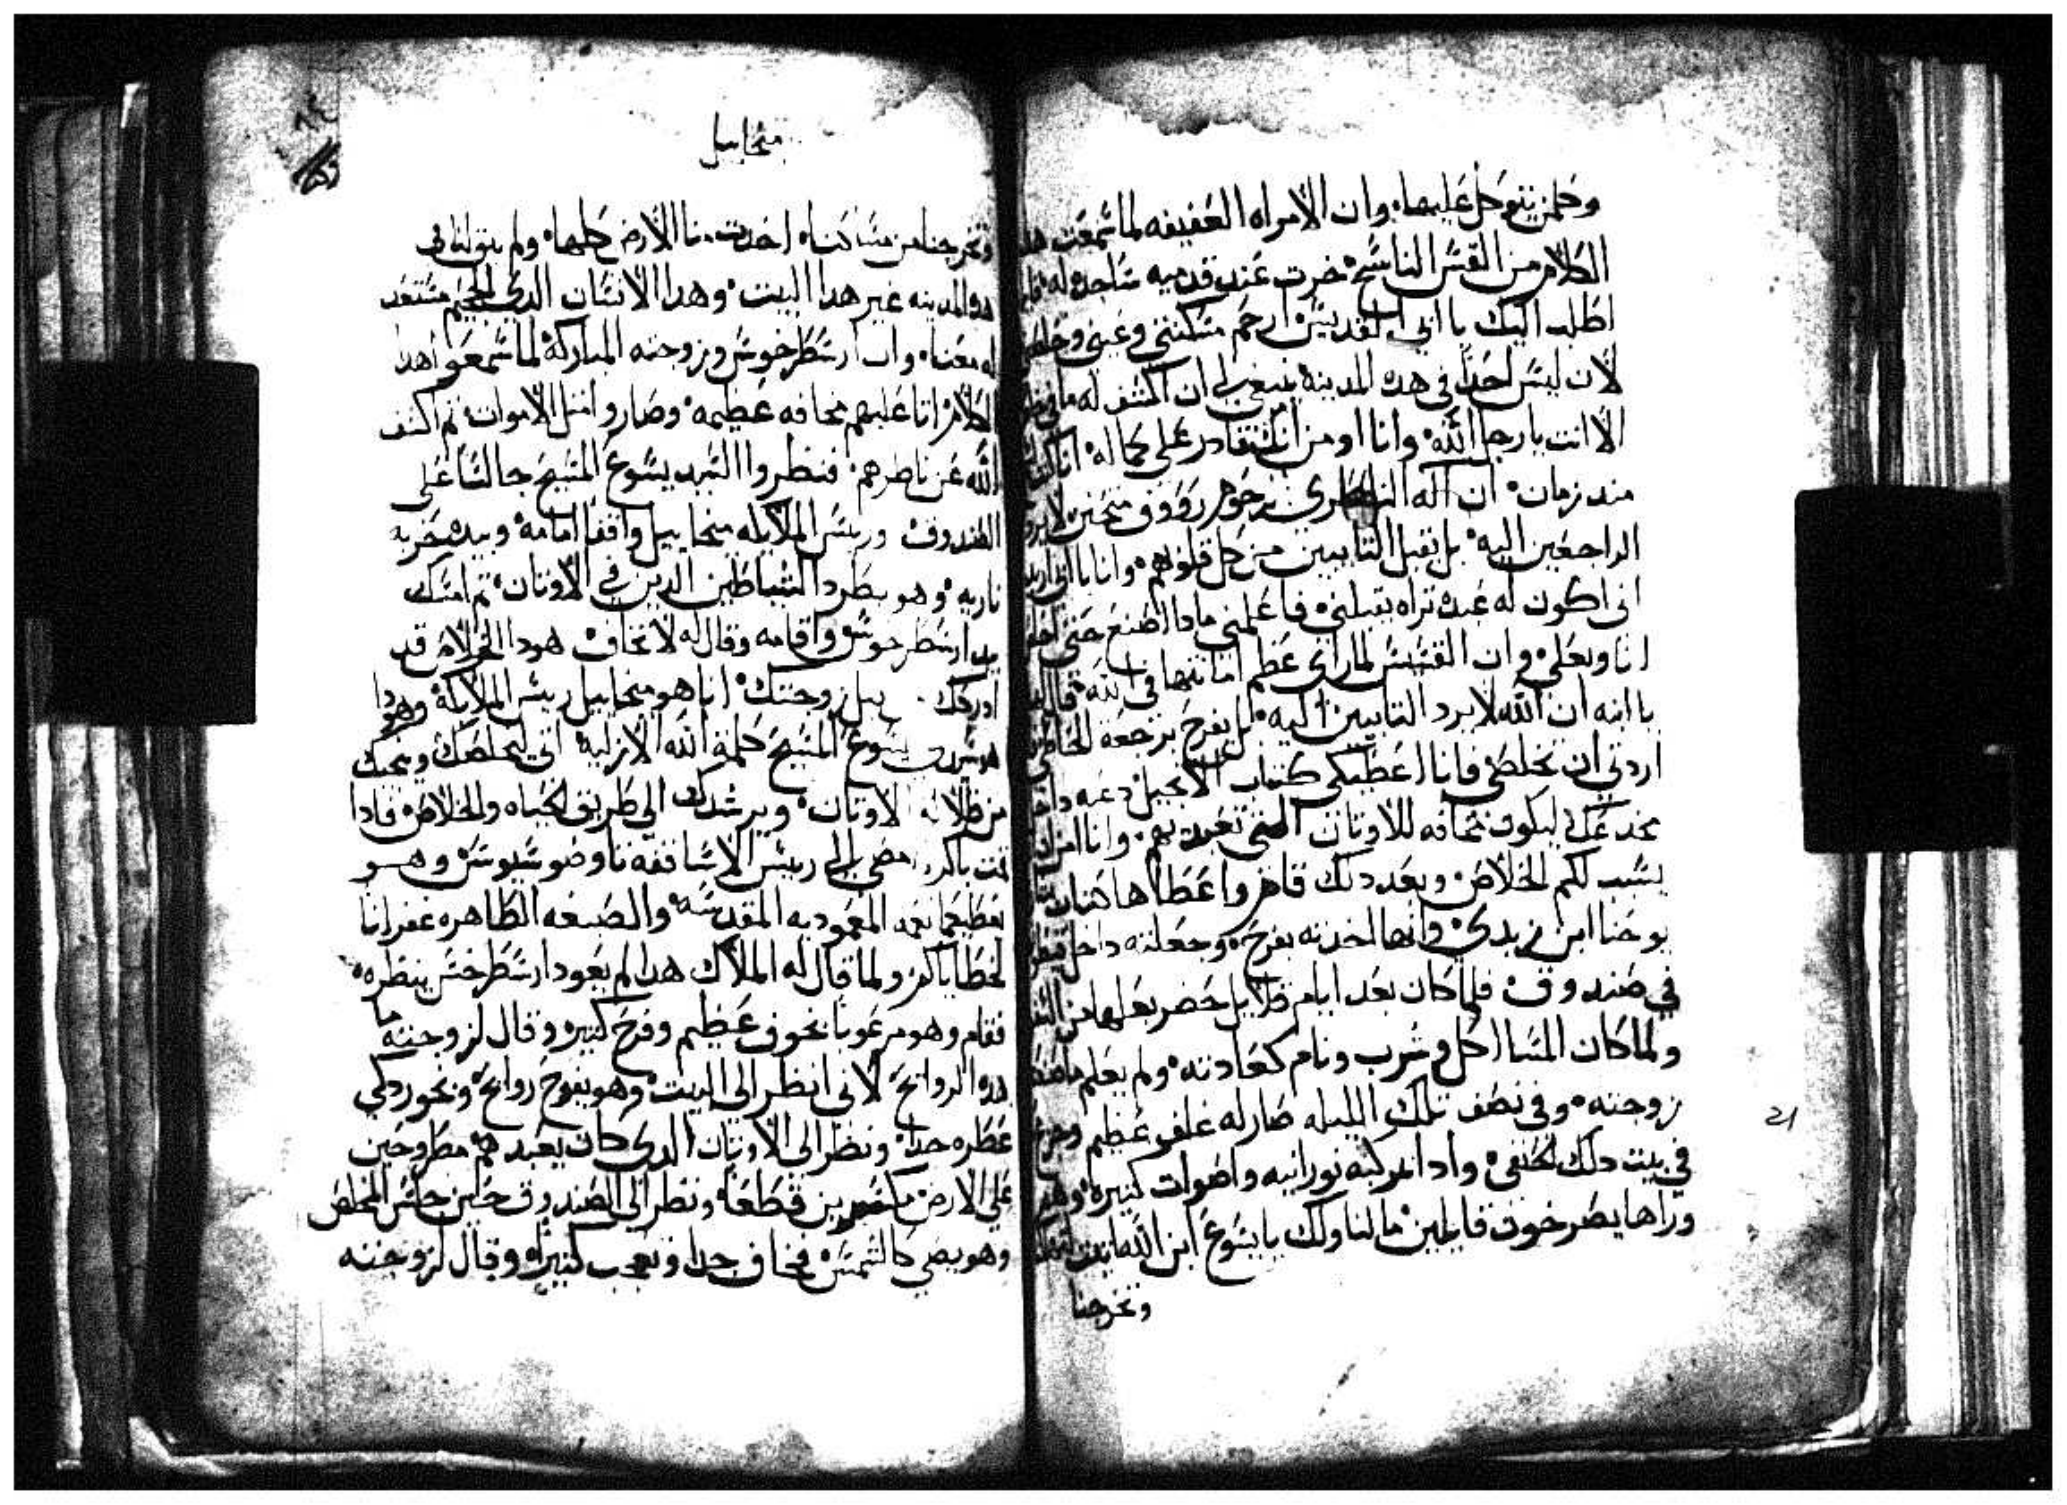 وكلمن يتوكل عليهما. وان الامراه العفيفه لما سمعت هدا
الكلام من القس الناسك خرت عند قدميه ساجده له
اطلب اليك يا ابي القديس ارحم مسكنتي وغيني
لان ليس احدًا في هده المدينه ينبغي لي ان اكشف له ما في
الا انت يا رجل الله وانا اومن انك قادر علي
مند زمان ان اله النصاري جوهر رووف متحنن لا يرد
الراجعين اليه بل يقبل التايبين من كل قلوبهم وانا يا ابي اريد
اني اكون له عبده تراه يقبلني فاعلمني مادا اصنع حتي
انا وبعلي وان القسيس لما راي عظم امانتها في الله قال لها
يا ابنه ان الله لا يرد التايبين اليه بل يفرح برجعة الخاطي
اردتي ان تخلصي فانا اعطيكي كتاب الانجيل دعيه داخل
مخدعك ليكون مخافه للاوتان التي تعبد بهم وانا
يسبب لكم الخلاص وبعد دلك قام واعطاها كتاب
يوحنا ابن زبدي وانها اخدته بفرح وجعلته داخل
في صندوق فلما كان بعد ايام قلايل حضر بعلها من السفر
ولما كان المسا اكل وشرب ونام كعادته ولم يعلم ما صنعت
زوجته وفي نصف تلك الليله صار له غلق عظيم
في بيت دلك الحنفي وادا مركبه نورانيه واصوات كتيره
وراها يصرخون قايلين ما لنا ولك يا يسوع ابن الله
وتخرجنا
ميخاييل
وتخرجنا من مساكننا. اخدت منا الارض كلها. ولم يبق لنا في
هده المدينه غير هدا البيت وهدا الانسان الدي الجحيم مستعد
له معنا. وان ارسطرخوس وزوجته المباركه لما سمعوا هدا
الكلام اتا عليهم مخافه عظيمه وصاروا متل الاموات تم اكشف
الله عن ناظرهم فنظروا السيد يسوع المسيح جالسًا علي
الصندوق وريس الملايكه ميخاييل واقفا امامه وبيده حربه
ناريه وهو يطرد الشياطين الدين في الاوتان تم امسك
بيد ارسطرخوس واقامه وقال له لا تخاف هودا الخلاص قد
ادركك زوجتك انا هو ميخاييل ريس الملايكه وهودا
يسوع المسيح كلمة الله الازليه اتي ليخلصك وينجيك
من ظلالة الاوتان ويرشدك الي طريق الحياه والخلاص فادا
قمت باكر امضي الي ريس الاساقفه وهو
يعطيكما نعمة المعموديه المقدسه والصبغه الطاهره غفرانا
لخطاياكم ولما قال له الملاك هدا لم يعود ارسطرخس ينظره
فقام وهو مرعوبا بخوف عظيم وفرح كتير وقال لزوجته ما
هده الروايح لاني انظر الي البيت وهو يفوح روايح وبخور دكي
عطره جدا ونظر الي الاوتان الدي كان يعبدهم مطروحين
علي الارض مكسرين قطعا ونظر الي الصندوق حين جلس المخلص
وهو يضي كالشمس فخاف جدا وتعجب كتيرا وقال لزوجته
21